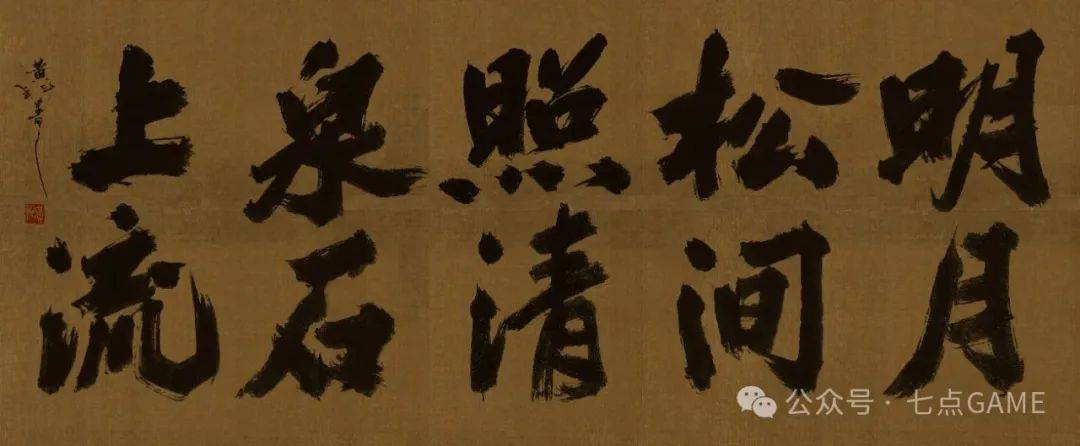 明月
松间
照清
泉石
上流
公众号 · 七点GAME